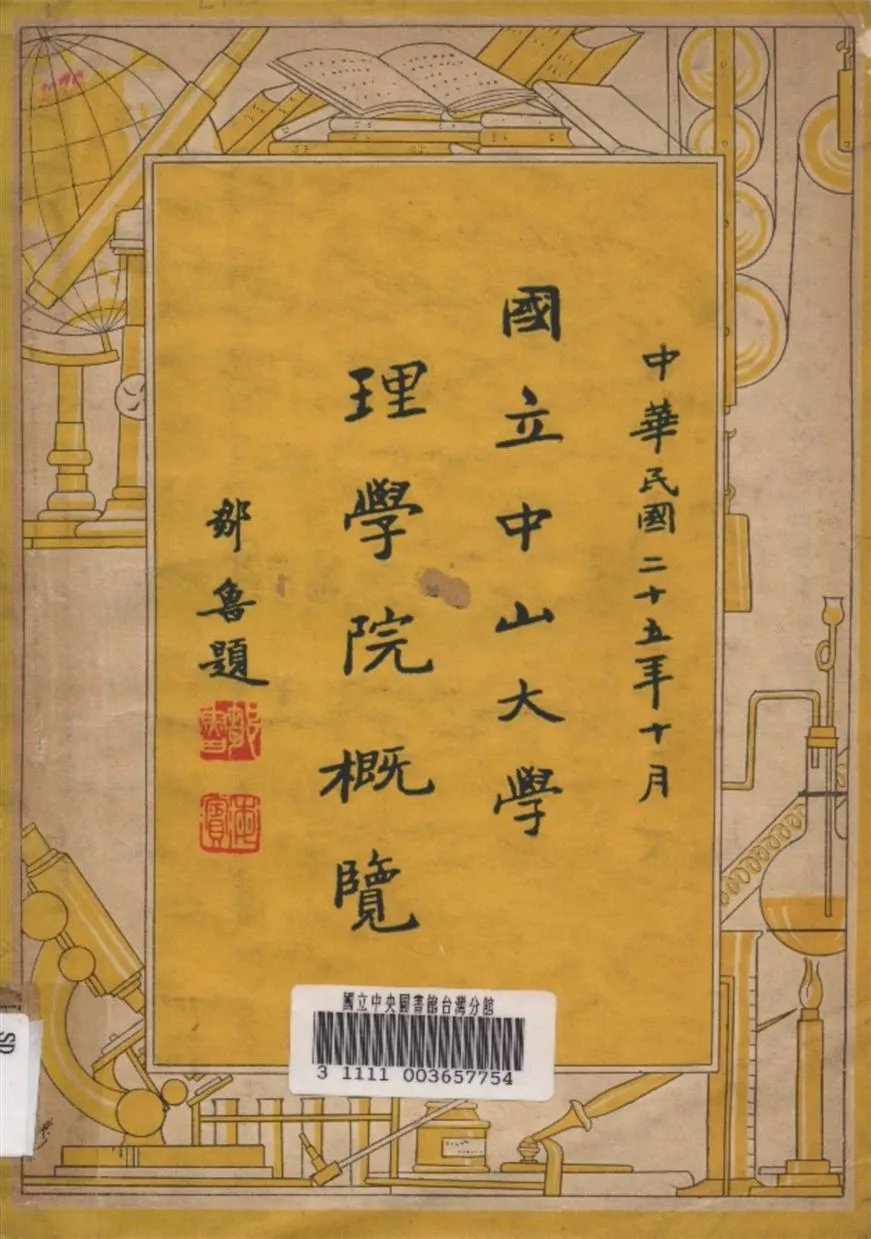 中華民國二十五年十月
國立中山大學
理學院概覽
鄒魯題
鄒魯
海濱
國立中央圖書館台灣分館
3 1111 003657754
SD